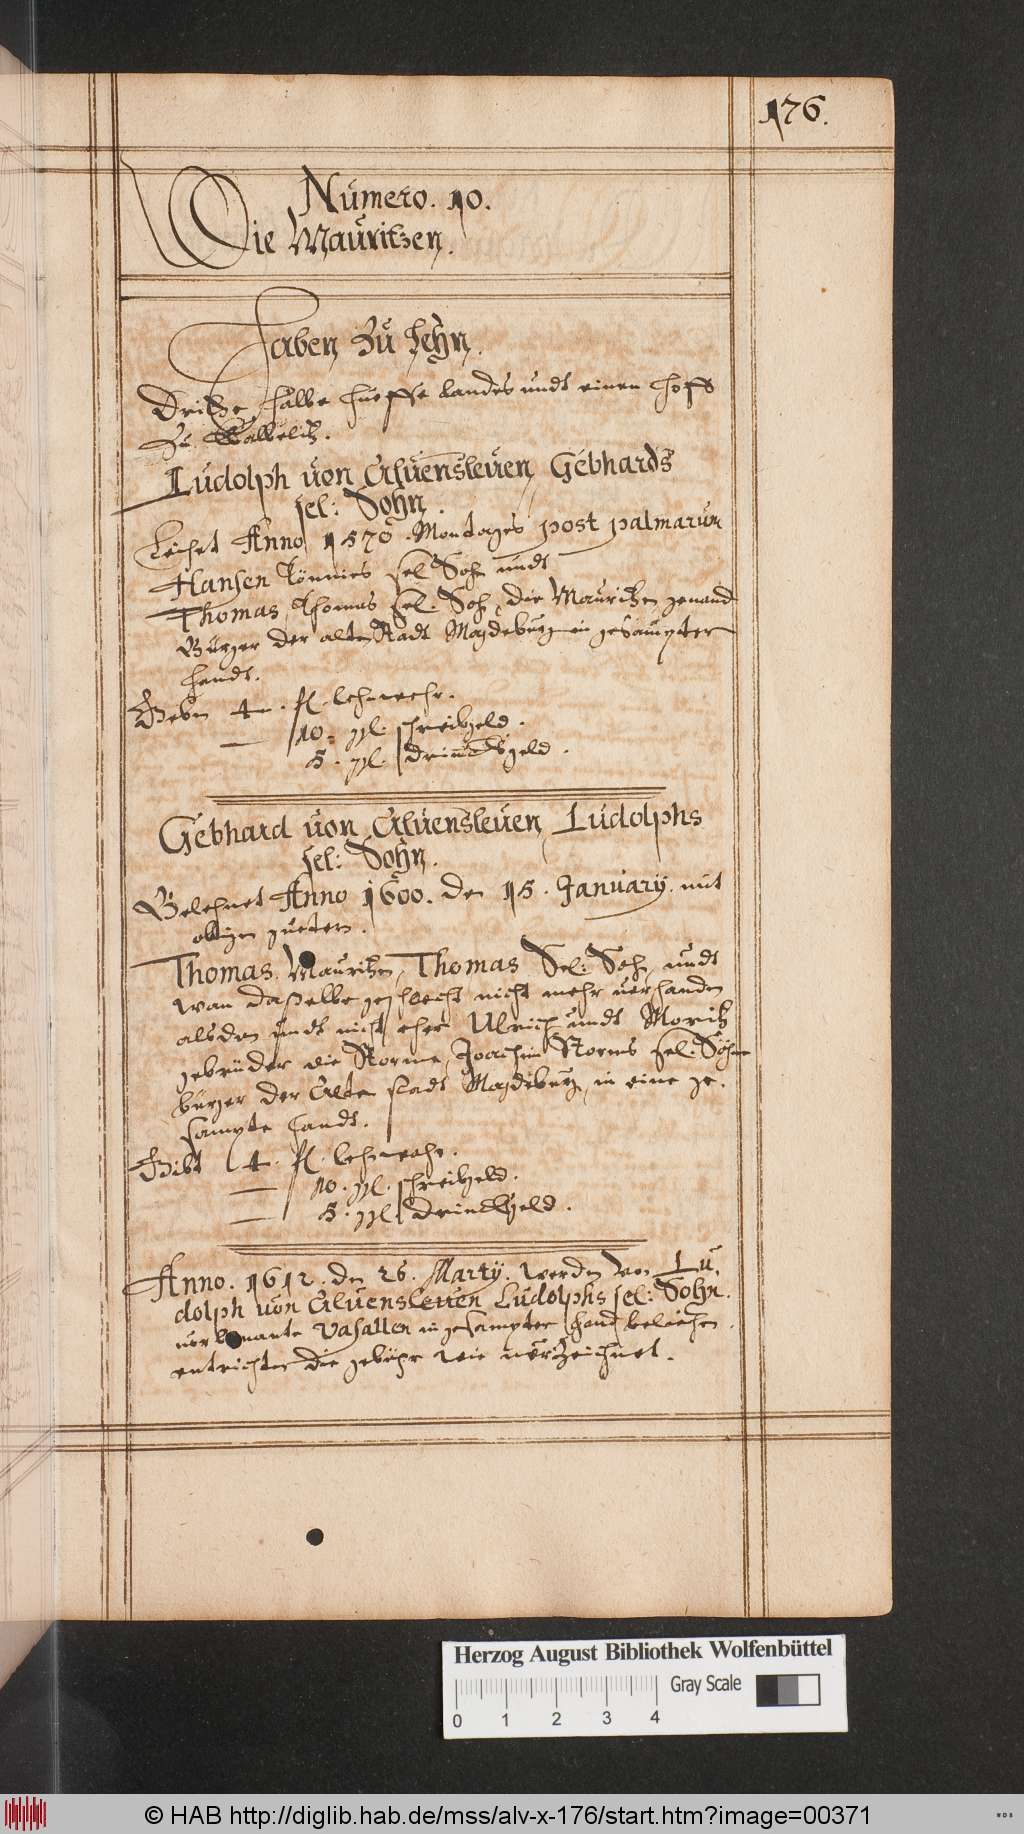 176.
Numero. 10.
Die Mauritzen.
Haben zu Lehn.
Dritte halbe Hueffe landes undt einen Hoff
zu
Ludolph von Alvensleven Gebhards
sel: Sohn.
Leihet Anno 1570. Montages post palmarum
Hansen Tönnies sel Sohn undt
Thomas, Thomas sel. Sohn, die Mauritzen genand
Bürger der alten Stadt Magdeburg in gesampter
handt.
Geben 4. fl. lehnwehr.
10. gl. schreibgeld.
5. gl. drinckgeld.
Gebhard von Alvensleven Ludolphs
sel: Sohn.
Belehnet Anno 1600. den 15. January. mit
obigen guetern.
Thomas Mauritzen, Thomas Sel: Sohn, undt
wan daßelbe geschlecht nicht mehr verhanden
alsdan undt nicht eher Ulrich undt Moritz
gebrüder die Storme, Joachim Storms sel: Söhne
bürger der Alten stadt Magdeburg, in eine ge-
sampte handt.
Gibt 4. fl. lehnwahr.
10. gl. schreibgeld.
5. gl. drinckgeld.
Anno. 1612. den 26. Marty. werden von Lu-
dolph von Alvensleven Ludolphs sel: Sohn.
vorbenante Vasallen in gesampter hand beliehen.
entrichten die gebühr wie verzeichnet.
Herzog August Bibliothek Wolfenbüttel
Gray Scale
0 1 2 3 4
© HAB http://diglib.hab.de/mss/alv-x-176/start.htm?image=00371